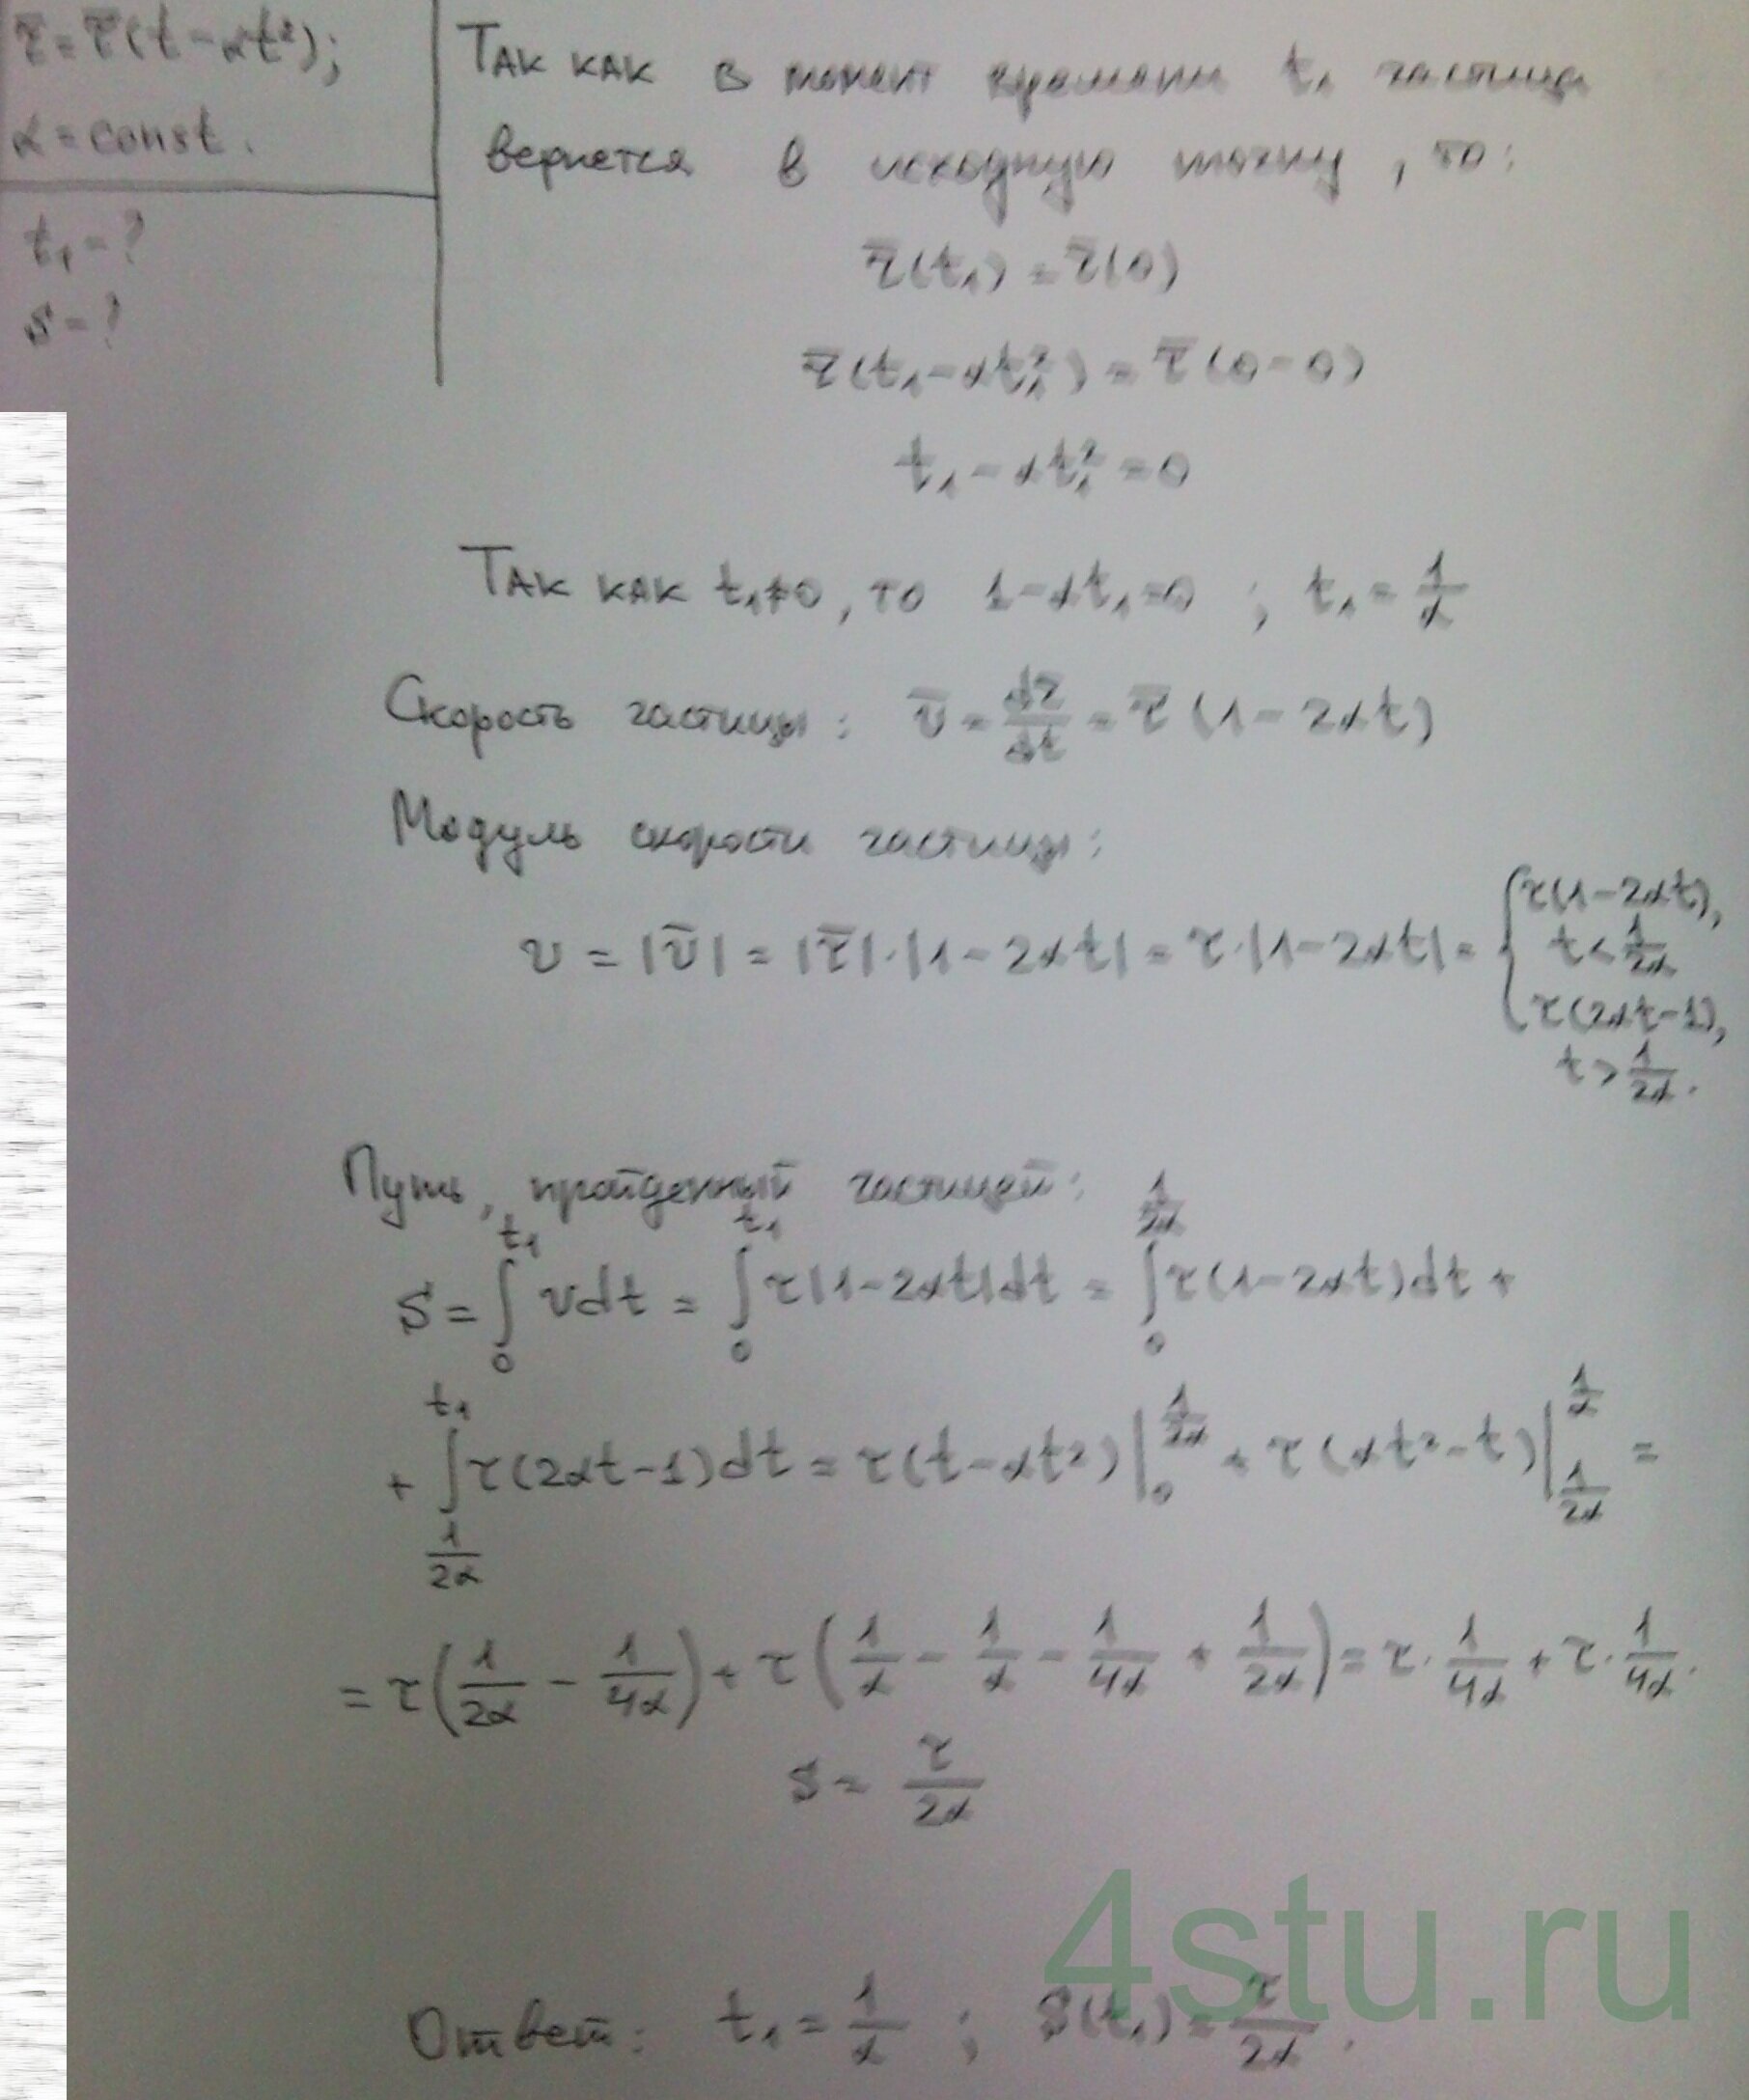 τ̄ = τ̄(t - αt²);
α = const.
t₁ - ?
S - ?
Так как в момент времени t₁ частица
вернется в исходную точку, то:
τ̄(t₁) = τ̄(0)
τ̄(t₁ - αt₁²) = τ̄(0 - 0)
t₁ - αt₁² = 0
Так как t₁ ≠ 0, то 1 - αt₁ = 0 ; t₁ = 1/α
Скорость частицы: v̄ = dτ̄/dt = τ̄(1 - 2αt)
Модуль скорости частицы:
v = |v̄| = |τ̄|·|1 - 2αt| = τ·|1 - 2αt| = { τ(1 - 2αt), t < 1/2α
τ(2αt - 1), t > 1/2α.
Путь, пройденный частицей:
S = ∫₀^t₁ vdt = ∫₀^t₁ τ|1 - 2αt|dt = ∫₀^(1/2α) τ(1 - 2αt)dt +
+ ∫_(1/2α)^t₁ τ(2αt - 1)dt = τ(t - αt²)|₀^(1/2α) + τ(αt² - t)|_(1/2α)^(1/α) =
= τ(1/2α - 1/4α) + τ(1/α - 1/α - 1/4α + 1/2α) = τ·1/4α + τ·1/4α.
S = τ/2α
Ответ: t₁ = 1/α ; S(t₁) = τ/2α.
4stu.ru